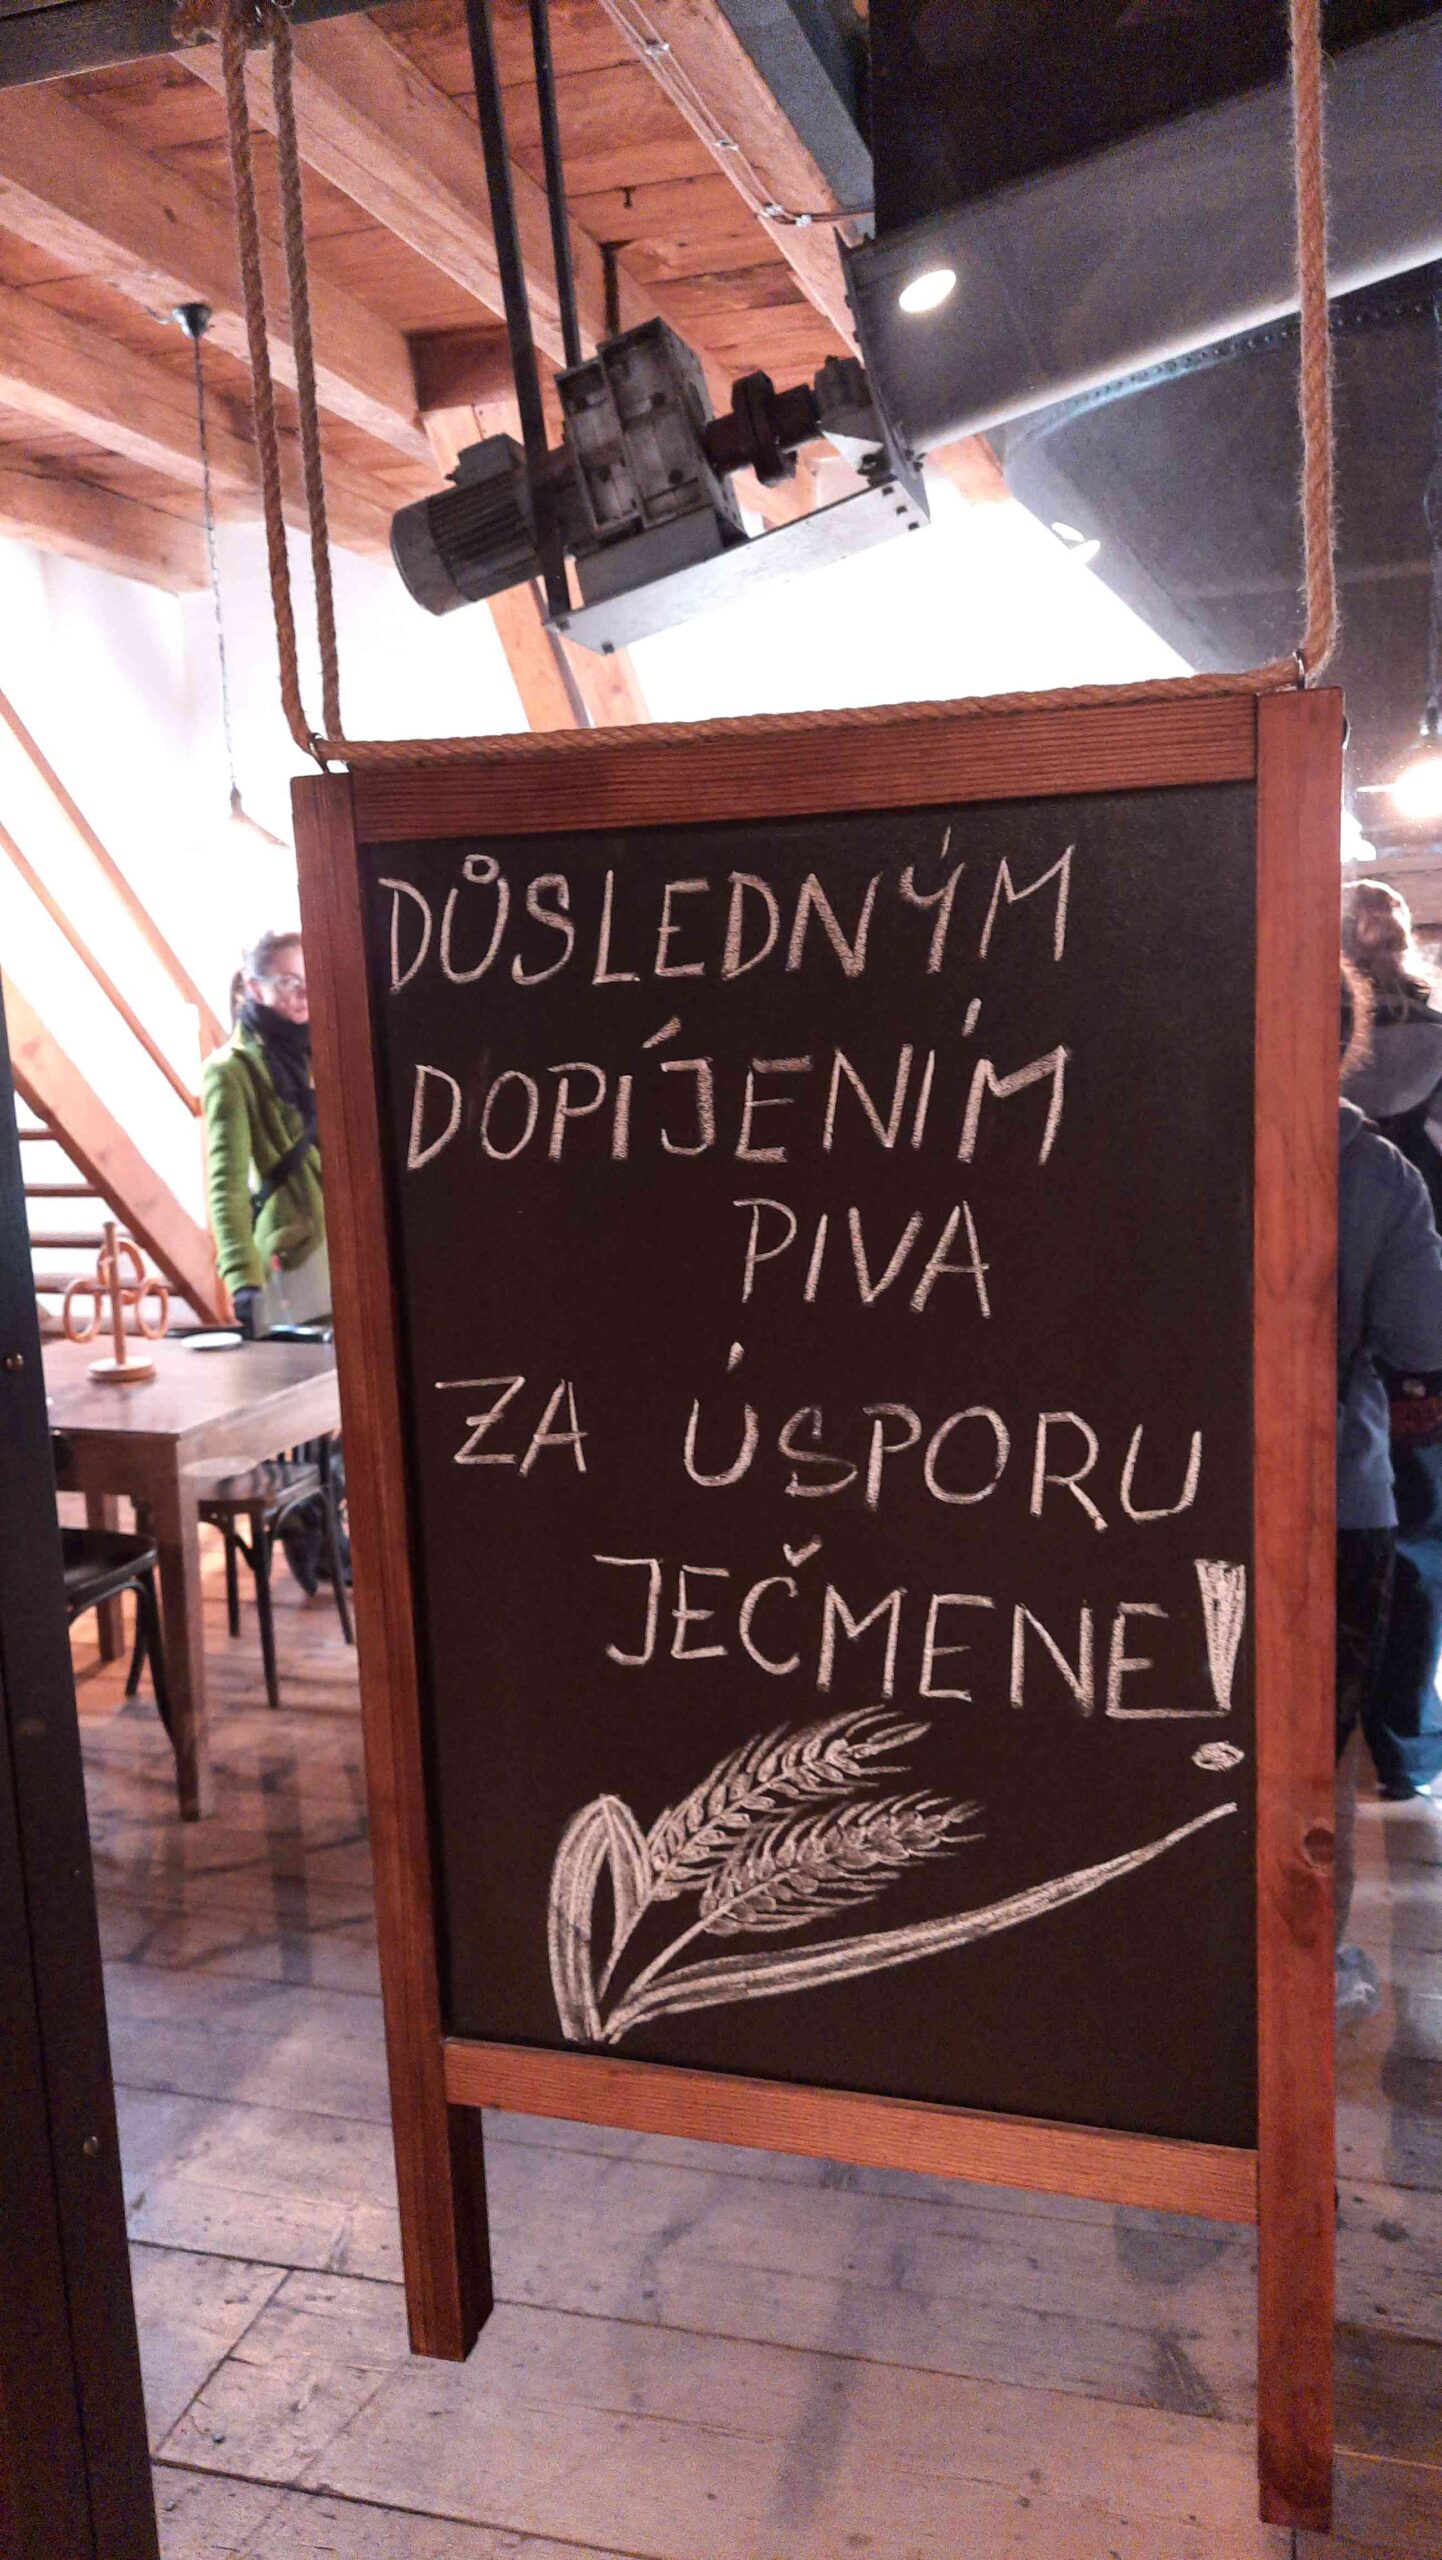 DŮSLEDNÝM
DOPÍJENÍM
PIVA
ZA ÚSPORU
JEČMENE!